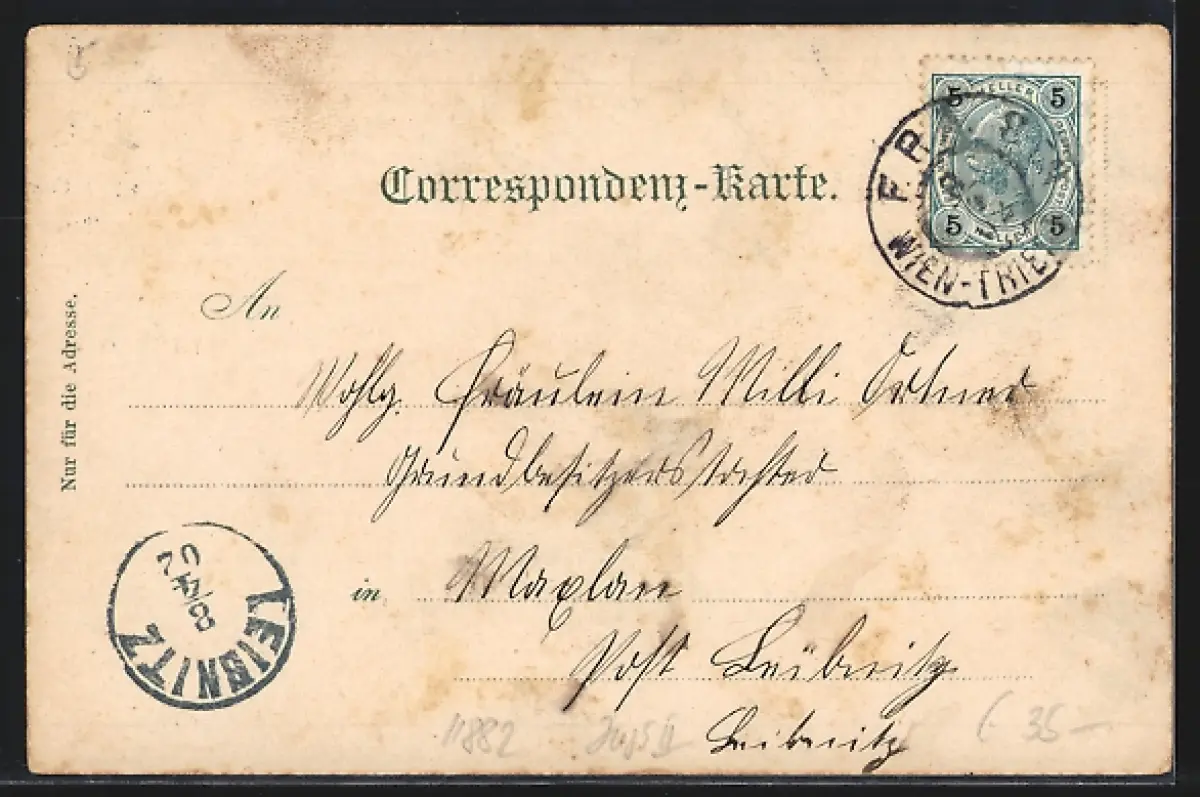 5 HELLER 5
5 HELLER 5
F.R.A.
WIEN-TRIE
Correspondenz-Karte.
Nur für die Adresse.
An
Wohlg. Fräulein Milli Ortner
Grundbesitzerstochter
in Maxlan
Post Leibnitz
Leibnitz
LEIBNITZ
8/4
02
11882
35-